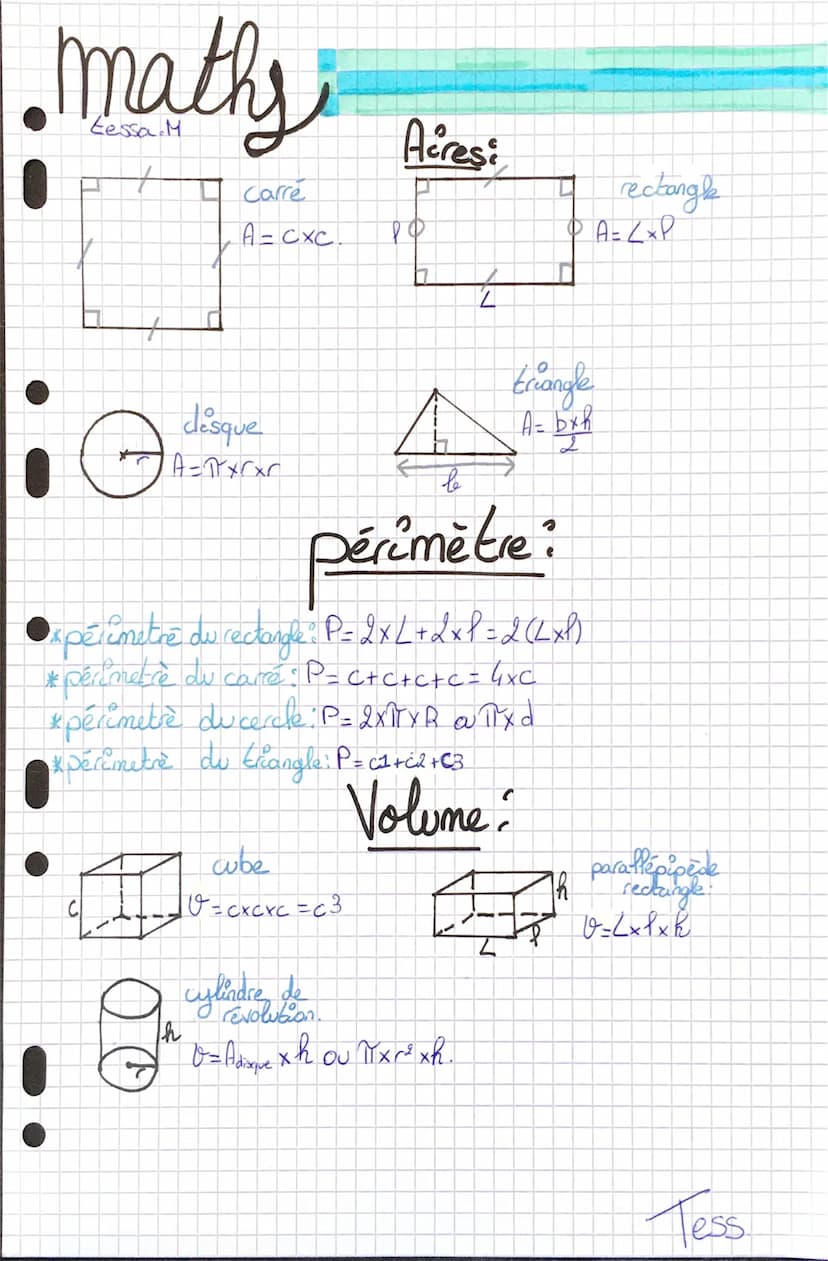 maths
tessa.M
Aires:
carré
A = c×c.
rectangle
l
A = L×l
L
disque
r
A = π×r×r
triangle
A = b×h/2
b
périmètre :
*périmetrè du rectangle : P= 2×L+2×l = 2(L×l)
*périmetrè du carré : P= c+c+c+c = 4×c
*périmetrè du cercle : P= 2×π×R ou π×d
*périmetrè du triangle : P= c1+c2+c3
Volume :
cube
c
V = c×c×c = c3
parallépipède
rectangle :
h
V=L×l×h
l
L
cylindre de
révolution.
h
V= Adisque × h ou π×r²×h.
r
Tess